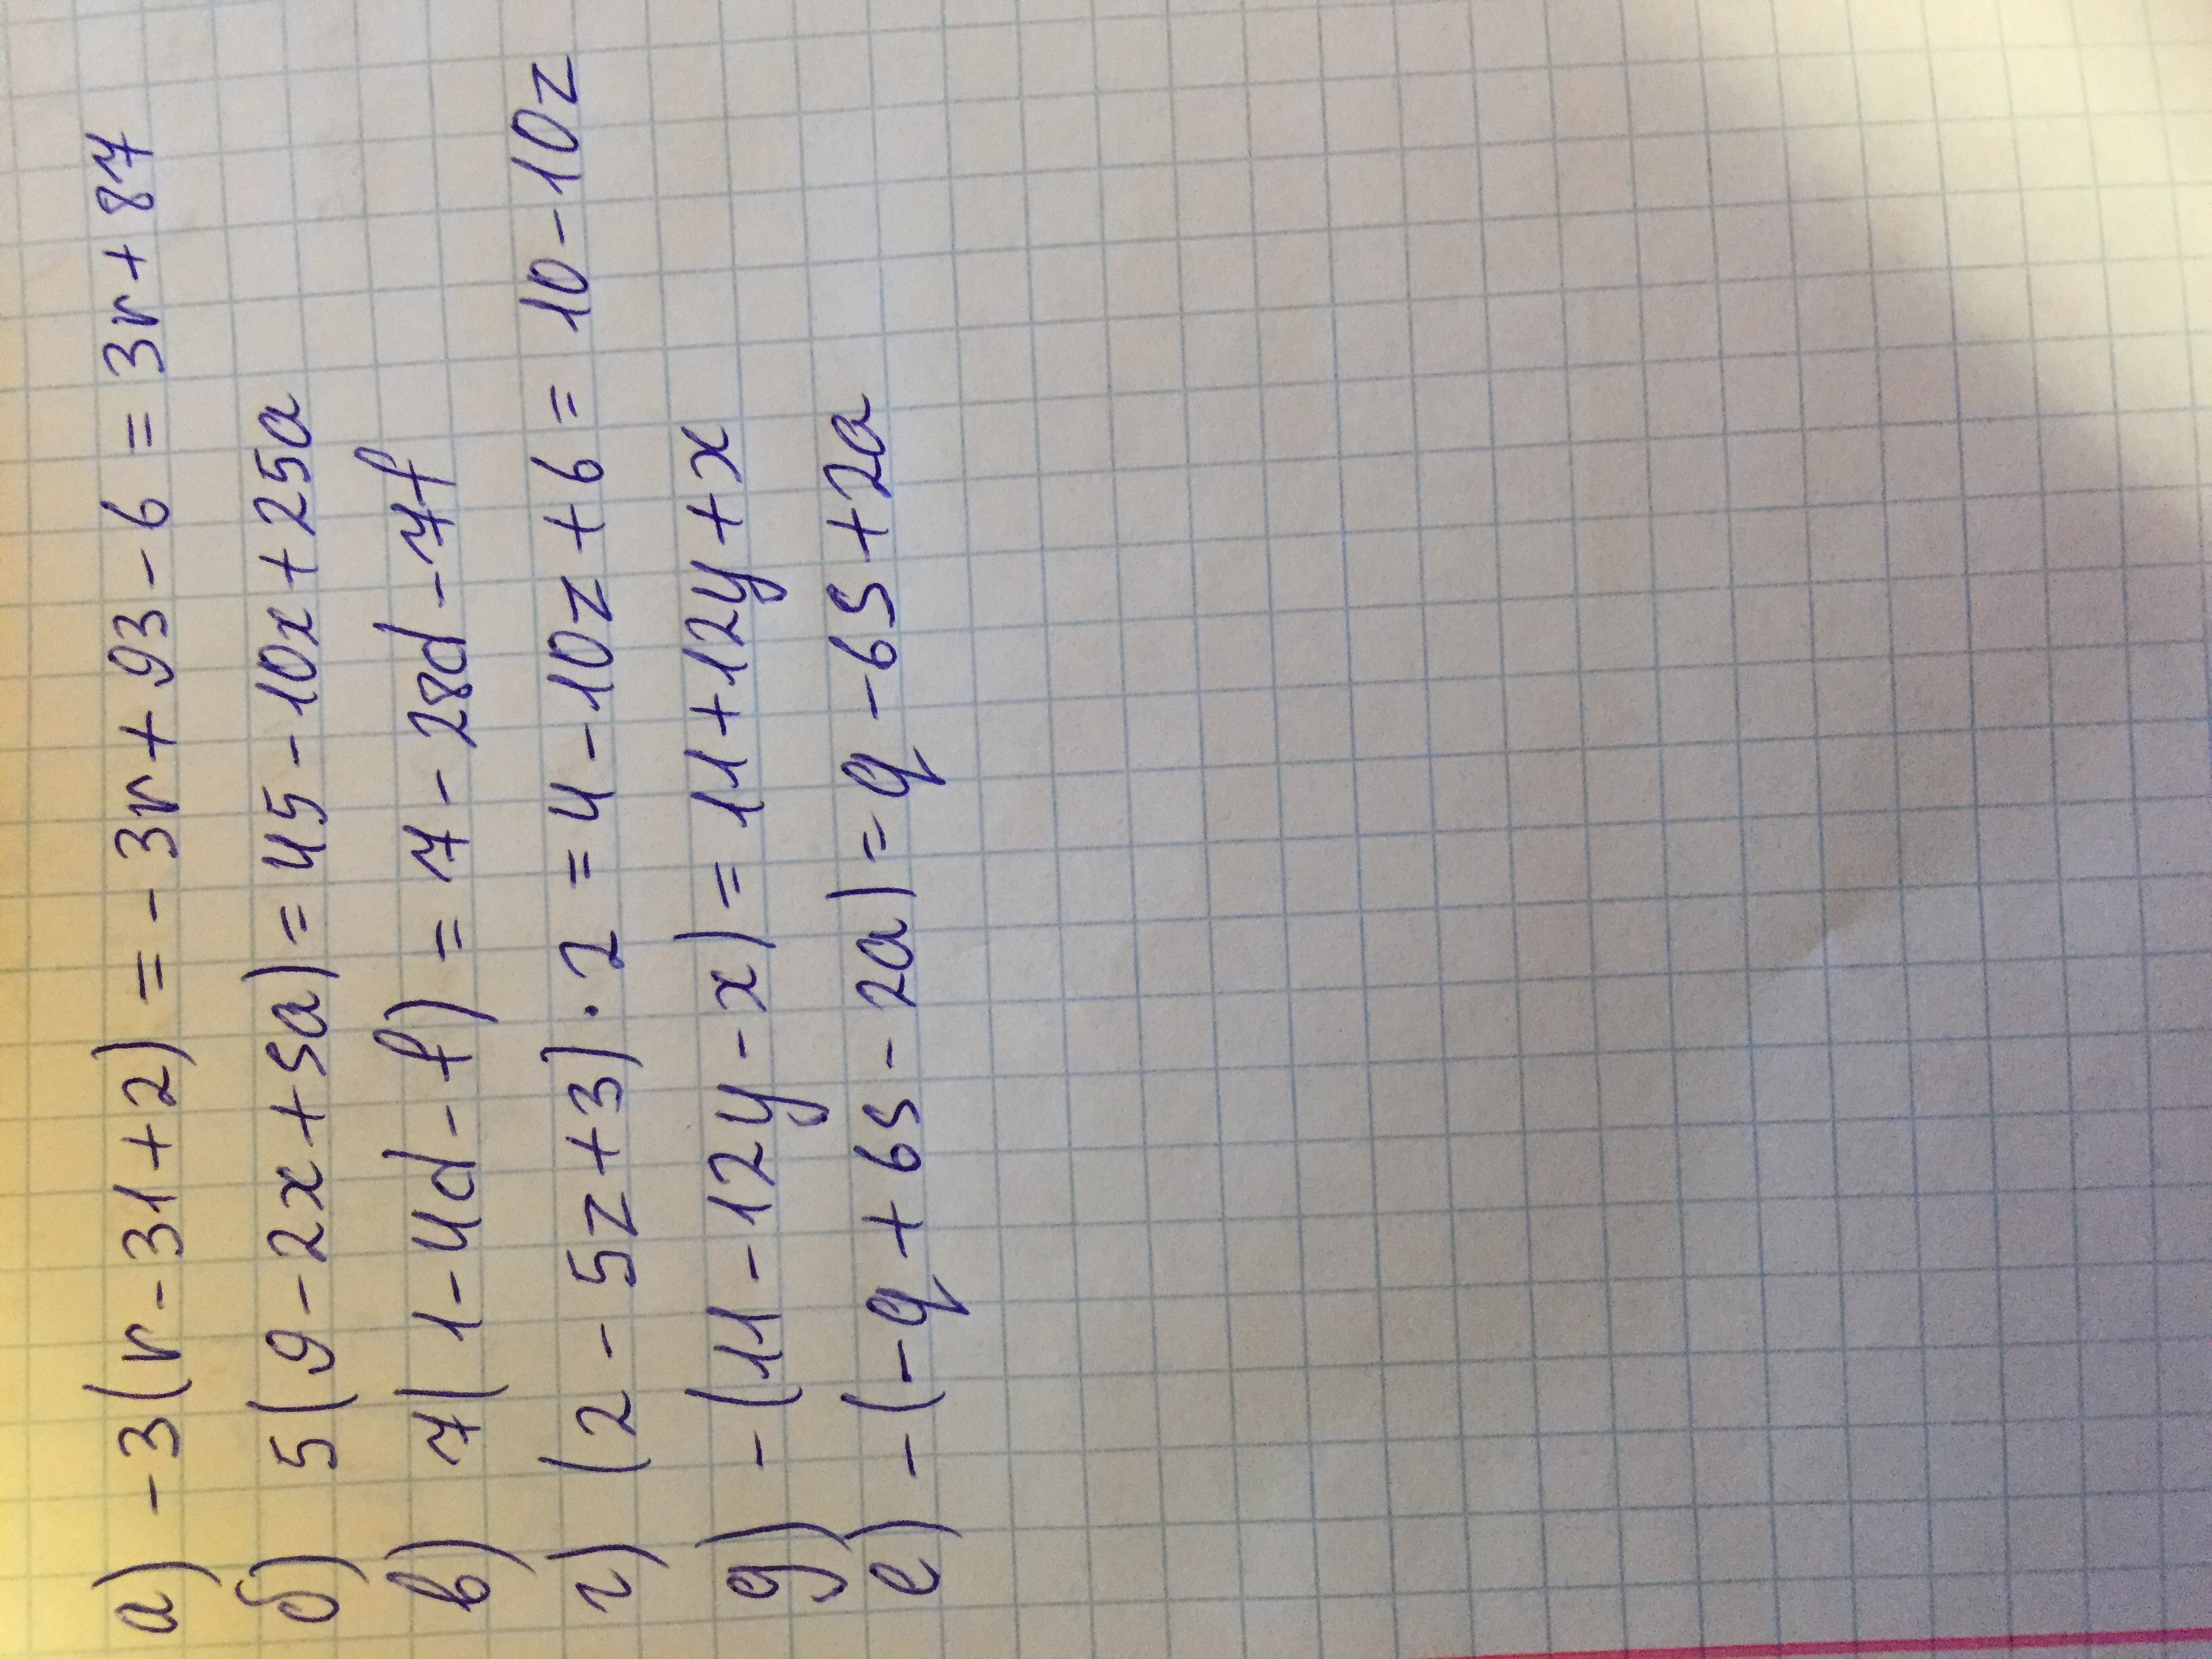 а) -3(r-31+2) = -3r+93-6 = 3r+87
б) 5(9-2x+5a)=45-10x+25a
в) 7(1-4d-f) = 7-28d-7f
г) (2-5z+3)·2=4-10z+6=10-10z
д) -(11-12y-x)=11+12y+x
е) -(-q+6s-2a)=q-6s+2a